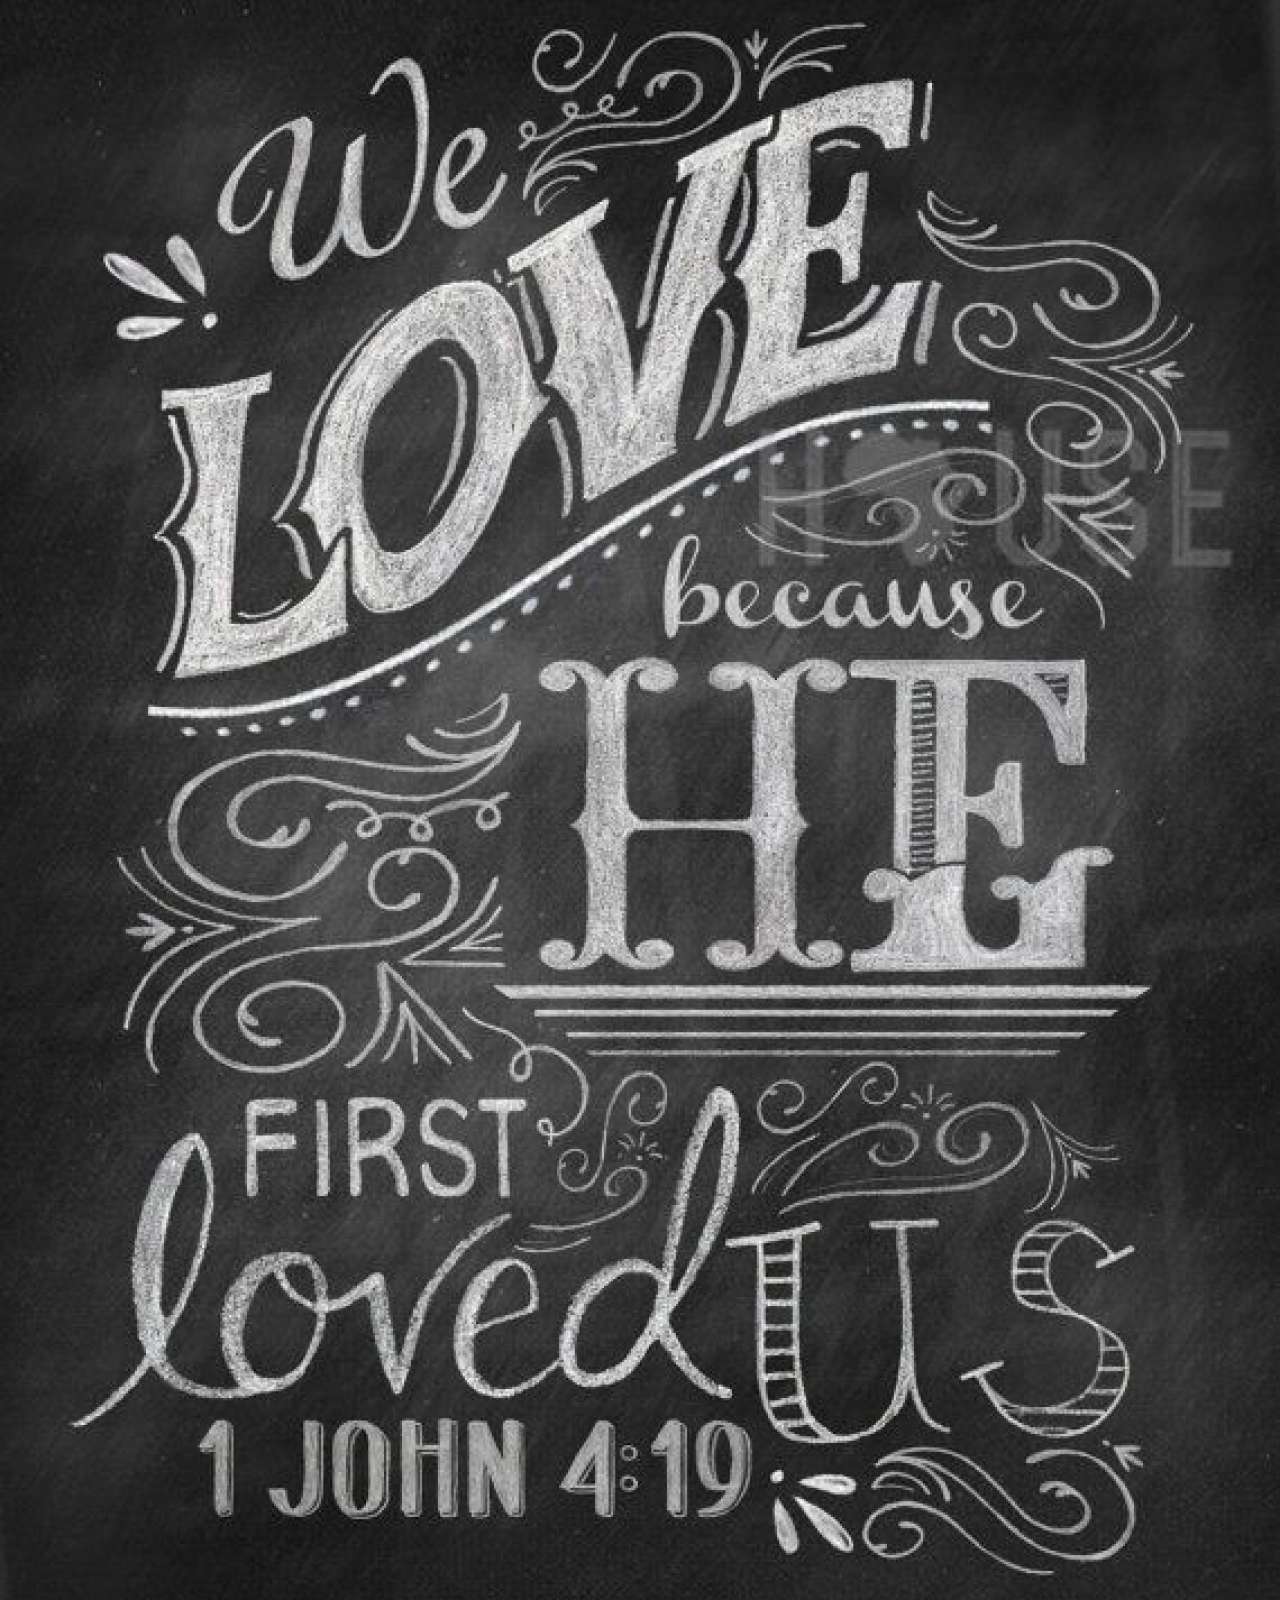 We
LOVE
HOUSE
because
HE
FIRST
loved
US
1 JOHN 4:19